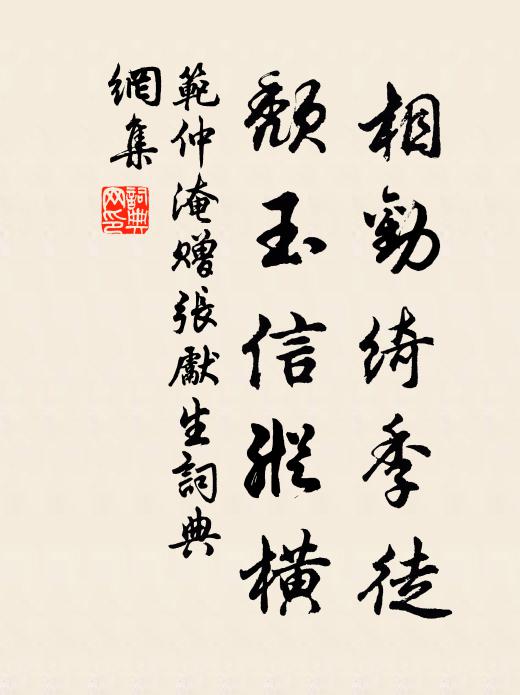 相勸綺季徒
頹玉信縱橫
範仲淹贈張獻生詞典
網集
詞典
网印